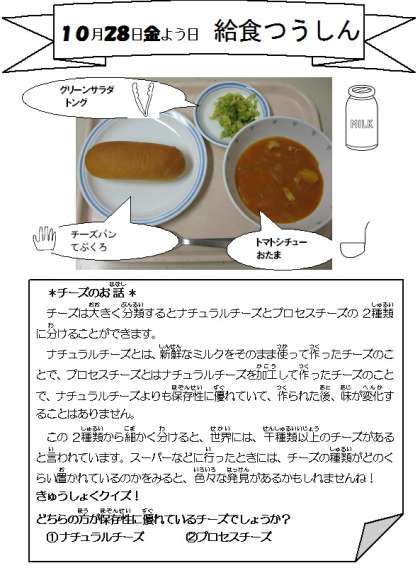 10月28日金よう日 給食つうしん
グリーンサラダ
トング
MILK
チーズパン
てぶくろ
トマトシチュー
おたま
＊チーズのお話＊
チーズは大きく分類するとナチュラルチーズとプロセスチーズの２種類
に分けることができます。
ナチュラルチーズとは、新鮮なミルクをそのまま使って作ったチーズのこ
とで、プロセスチーズとはナチュラルチーズを加工して作ったチーズのこと
で、ナチュラルチーズよりも保存性に優れていて、作られた後、味が変化す
ることはありません。
この２種類から細かく分けると、世界には、千種類以上のチーズがある
と言われています。スーパーなどに行ったときには、チーズの種類がどのく
らい置かれているのかをみると、色々な発見があるかもしれませんね！
きゅうしょくクイズ！
どちらの方が保存性に優れているチーズでしょうか？
①ナチュラルチーズ ②プロセスチーズ